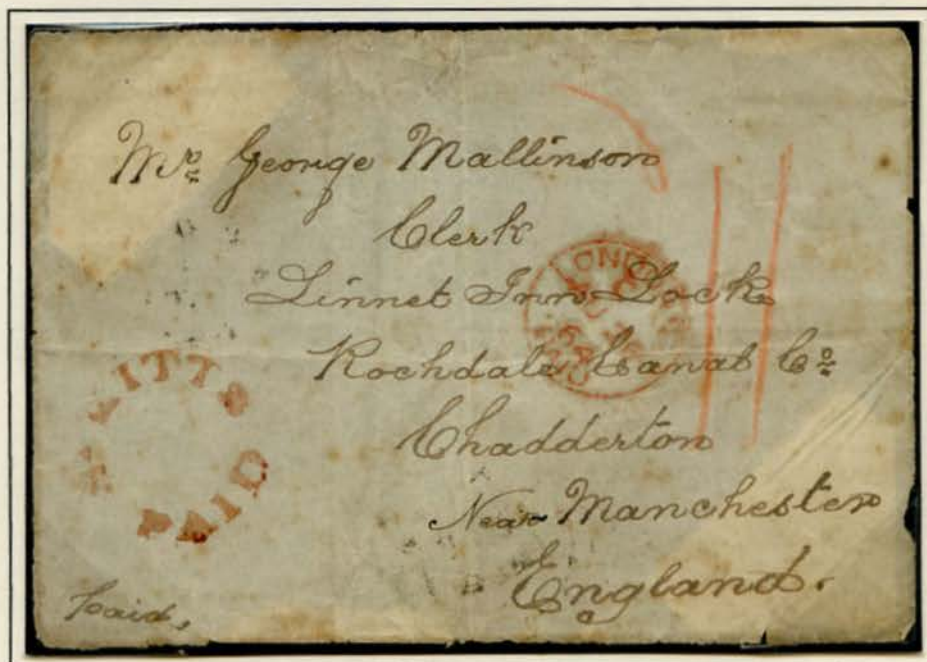 Mr George Mallinson
Clerk
Linnet Inn Lock
Rochdale Canal Co
Chadderton
Near Manchester
England.
Paid,
LITTS
PAID
LONDON